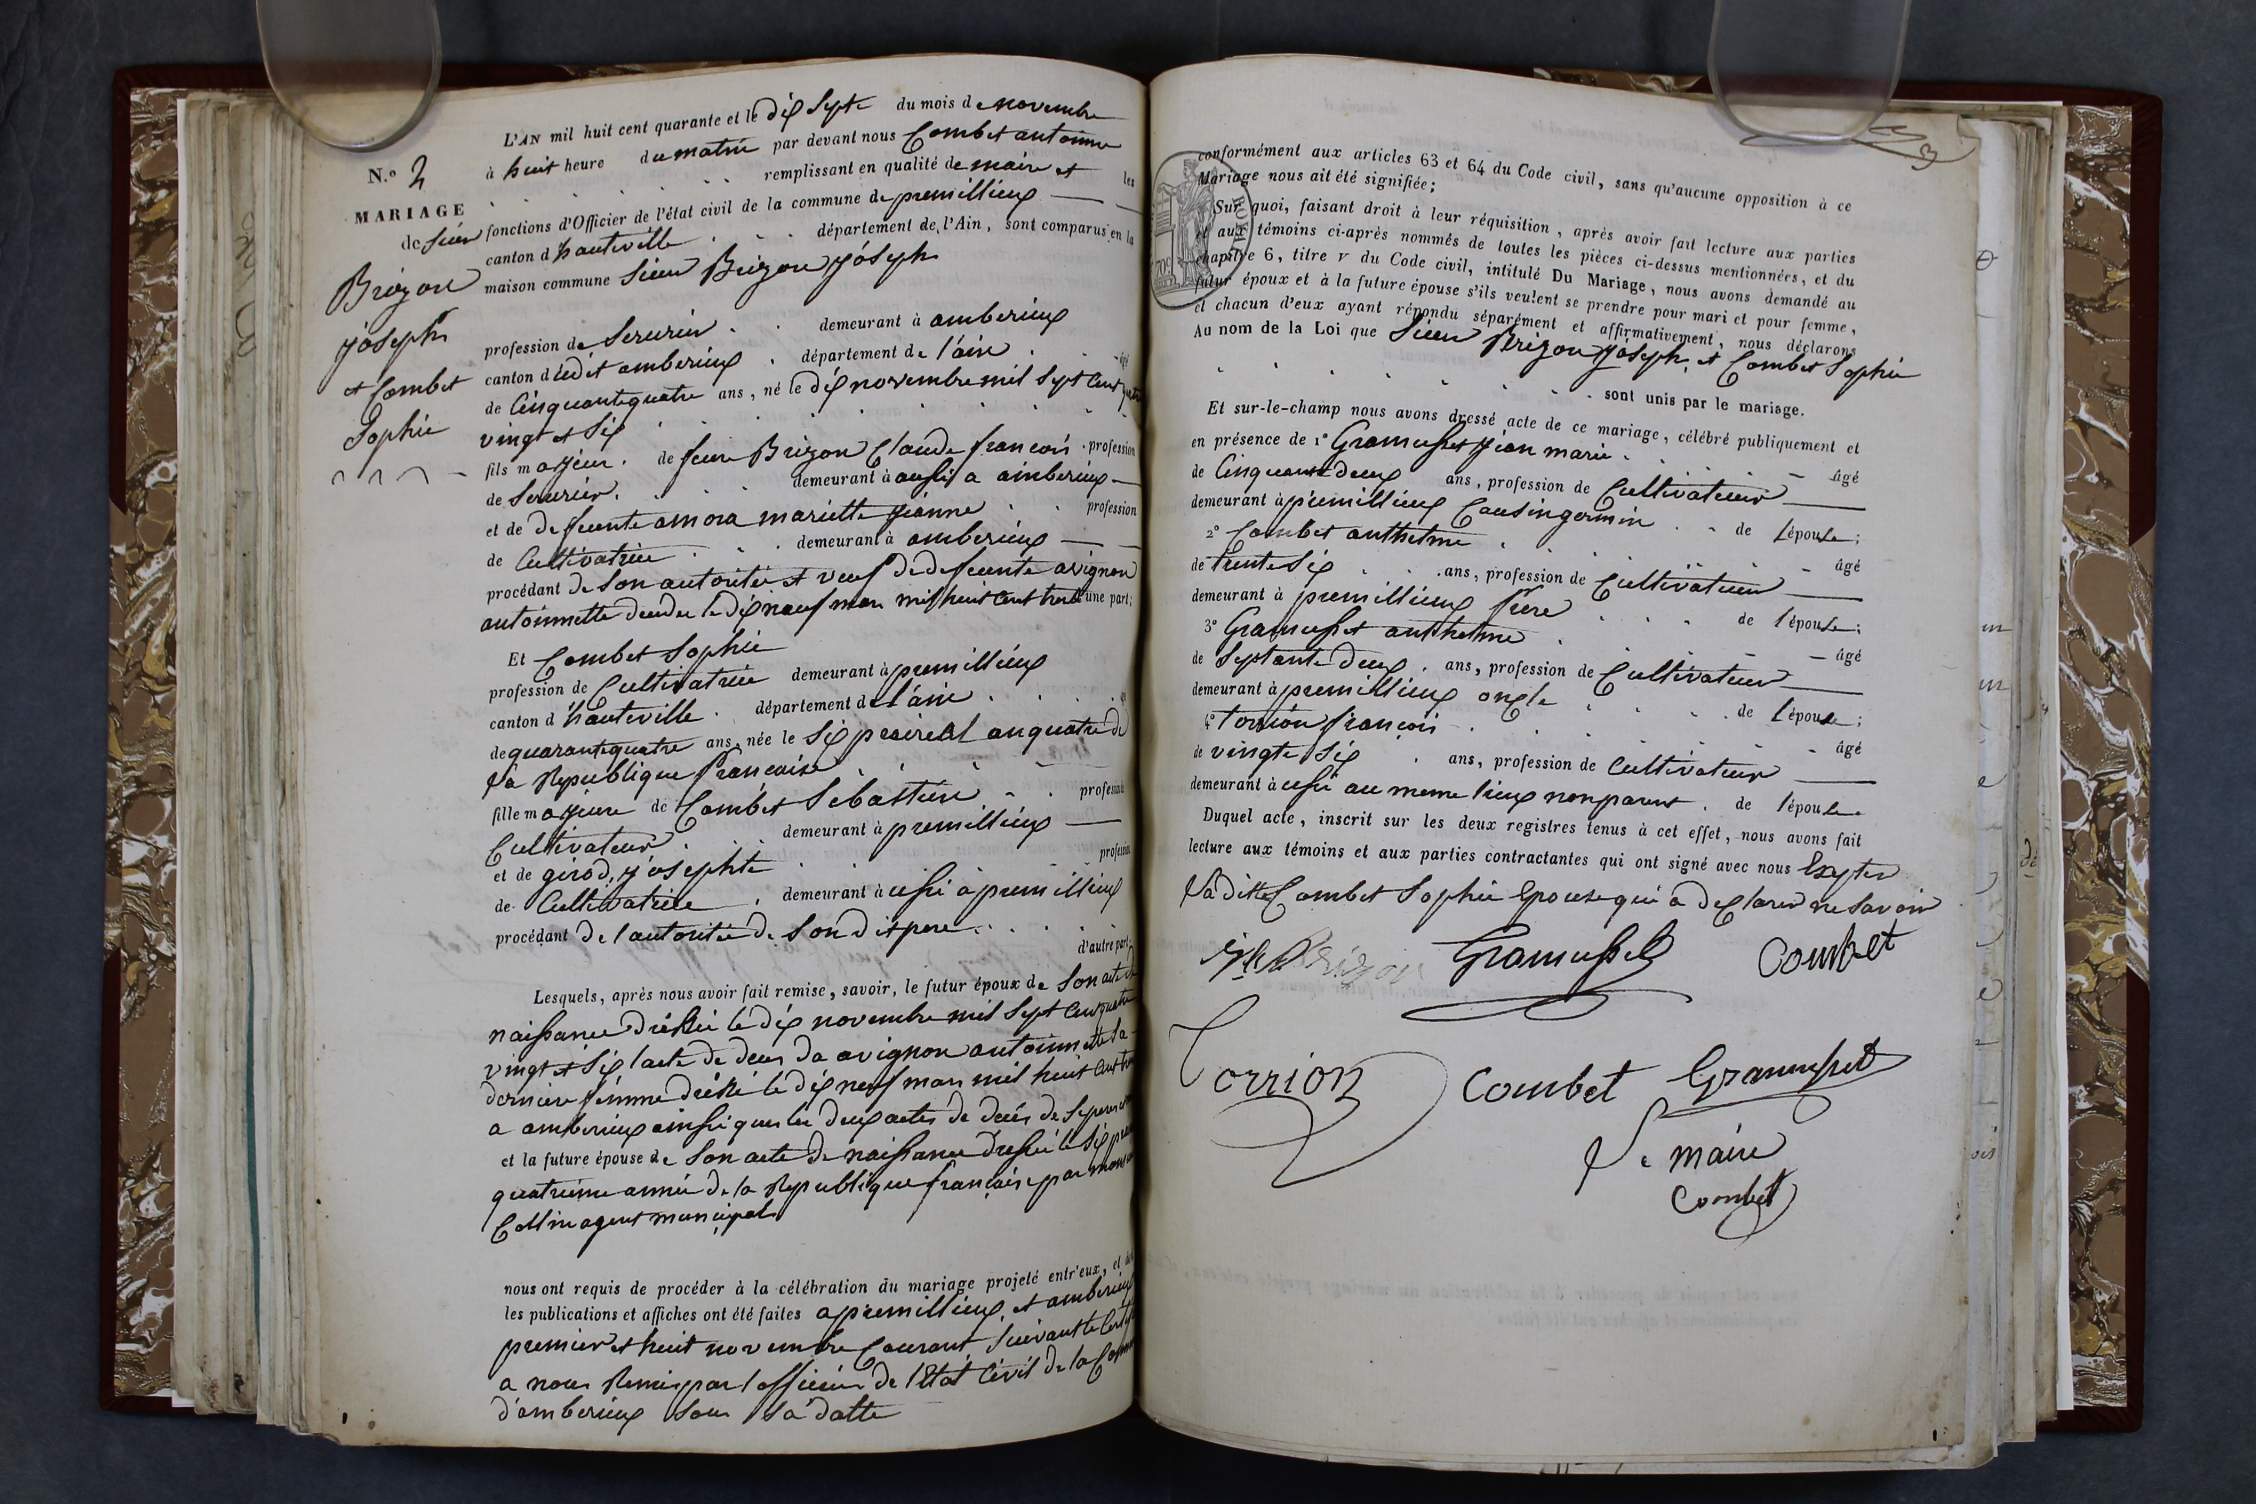 N.o 2
MARIAGE
de sieur
Brizon
joseph
et Combet
Sophie
L'AN mil huit cent quarante et le dix septe du mois de novembre
à huit heure du matin par devant nous Combet antoinne
remplissant en qualité de maire et les
fonctions d'Officier de l'état civil de la commune de premillieux
canton d'hauteville département de l'Ain, sont comparus en la
maison commune sieur Brizon joseph
profession de Serurier demeurant à amberieux
canton dudit amberieux département de l'ain âgé
de Cinquantequatre ans, né le dix novembre mil sept cent quatre
vingt et six
fils majeur de feeu Brizon Claude francois profession
de Serurier demeurant à aussi a amberieux
et de defeunte amora mariette jeanne profession
de Cultivatrice demeurant à amberieux
procédant de son autoritée et veuf de defeunte avignon
antoinnette decedee le dix neuf mars mil huit cent trente d'une part;
Et Combet Sophie
profession de Cultivatrice demeurant à premillieux
canton d'hauteville département de l'ain
de quarantequatre ans, née le six prairial an quatre de
la Republique francaise
fille majeure de Combet Sebastien profession de
Cultivateur demeurant à premillieux
et de girod, josephte profession
de Cultivatrice demeurant à ussi à premillieux
procédant de l'autoritée de son dit pere
d'autre part;
Lesquels, après nous avoir fait remise, savoir, le futur époux de son acte de
naissance dréssée le dix novembre mil sept cent quatre
vingt et six l'acte de deces da avignon antoinnette sa
derniere femme dréssé le dix neuf mars mil huit cent trente
a amberieux ainssi que les deux actes de decés de ses pere et
et la future épouse de son acte de naissance dressée le six prairial
quatrieme année de la Republique française par monsieur
Collin agent municipal
nous ont requis de procéder à la célébration du mariage projeté entr'eux, et dont
les publications et affiches ont été faites a premillieux et amberieux
premier et huit novembre Courant suivant le certificat
a nous Remis par l'officier de l'Etat Civil de la Commune
d'amberieux sous sa datte
3
conformément aux articles 63 et 64 du Code civil, sans qu'aucune opposition à ce
Mariage nous ait été signifiée;
Sur quoi, faisant droit à leur réquisition, après avoir fait lecture aux parties
et aux témoins ci-après nommés de toutes les pièces ci-dessus mentionnées, et du
chapitre 6, titre v du Code civil, intitulé Du Mariage, nous avons demandé au
futur époux et à la future épouse s'ils veulent se prendre pour mari et pour femme,
et chacun d'eux ayant répondu séparément et affirmativement, nous déclarons
Au nom de la Loi que Sieur Brizon joseph, et Combet Sophie
sont unis par le mariage.
Et sur-le-champ nous avons dressé acte de ce mariage, célébré publiquement et
en présence de 1o Gramusset jean marie âgé
de Cinquante deux ans, profession de Cultivateur
demeurant à premillieux Cousin germin de l'épouse;
2o Combet anthelme âgé
de trente six ans, profession de Cultivateur
demeurant à premillieux frere de l'épouse;
3o Gramusset anthelme âgé
de Septante deux ans, profession de Cultivateur
demeurant à premillieux oncle de l'épouse;
4o torrion françois âgé
de vingte six ans, profession de Cultivateur
demeurant à ussi au meme lieux non parent de l'épouse
Duquel acte, inscrit sur les deux registres tenus à cet effet, nous avons fait
lecture aux témoins et aux parties contractantes qui ont signé avec nous Exepter
la ditte Combet Sophie Epouse qui a declarer ne savoir
Brizon Gramusset Combet
Torrion Combet Gramusset
Le maire
Combet